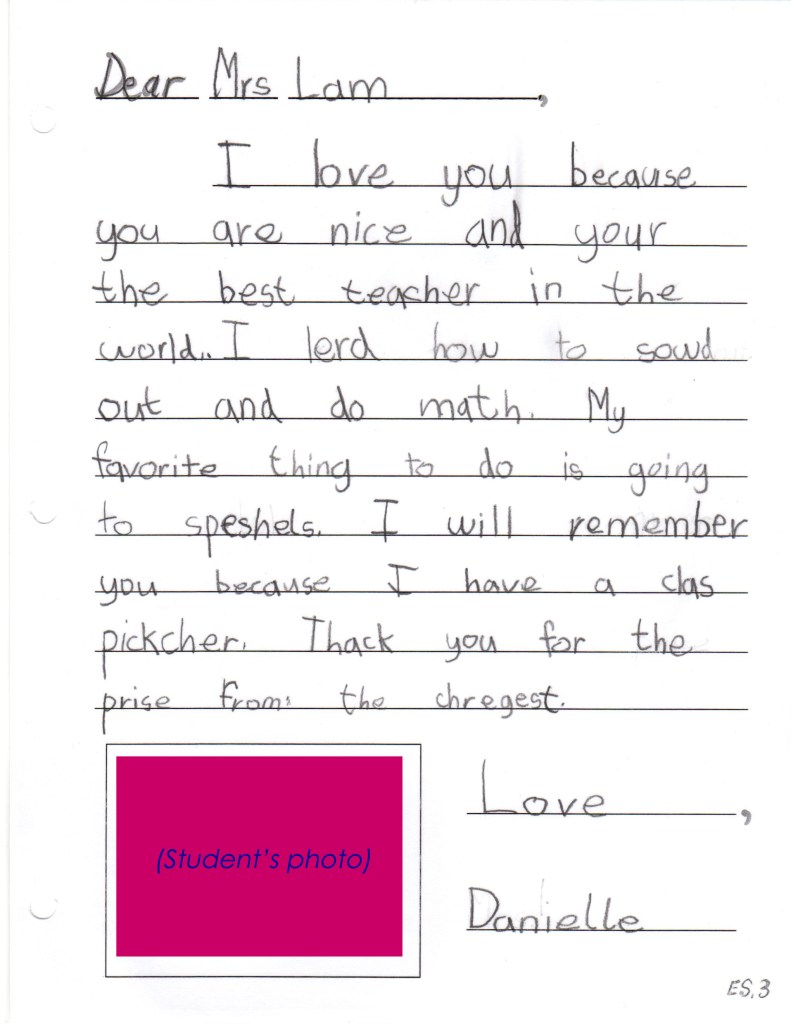 Dear Mrs Lam,
I love you because
you are nice and your
the best teacher in the
world. I lerd how to sowd
out and do math. My
favorite thing to do is going
to speshels. I will remember
you because I have a clas
pickcher. Thack you for the
prise from the chregest.
(Student's photo)
Love,
Danielle
ES.3